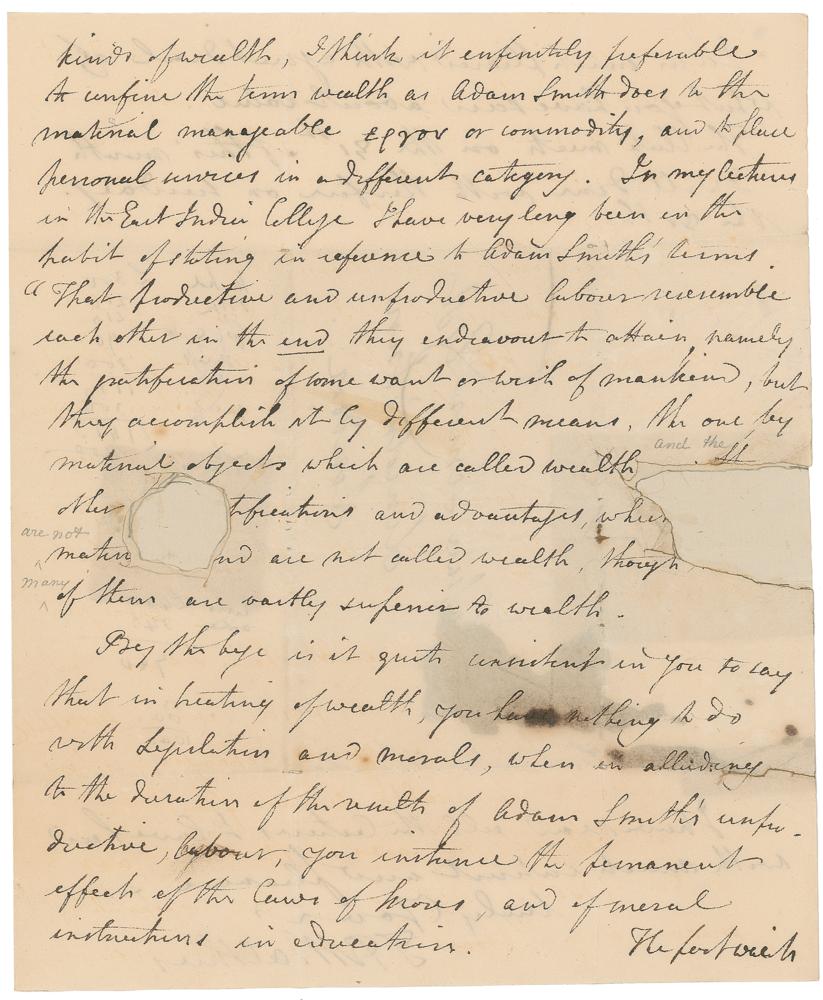 kinds of wealth, I think it enfinitely preferable
to confine the term wealth as Adam Smith does to the
material manageable εργον or commodity, and to place
personal services in a different category. In my lectures
in the East India College I have very long been in the
habit of stating in reference to Adam Smith's terms
"That productive and unproductive labour resemble
each other in the end they endeavour to attain, namely
the gratification of some want or wish of mankind, but
they accomplish it by different means, the one by
and the
material objects which are called wealth
other tifications and advantages, which
are not
mater nd are not called wealth, though
many
of them are vastly superior to wealth.
By the bye is it quite consistent in you to say
that in treating of wealth, you have nothing to do
with Legislation and morals, when in alluding
to the duration of the results of Adam Smith's unpro-
ductive, labour, you instance the permanent
effects of the Laws of Moses, and of moral
instructions in education.
The fact is